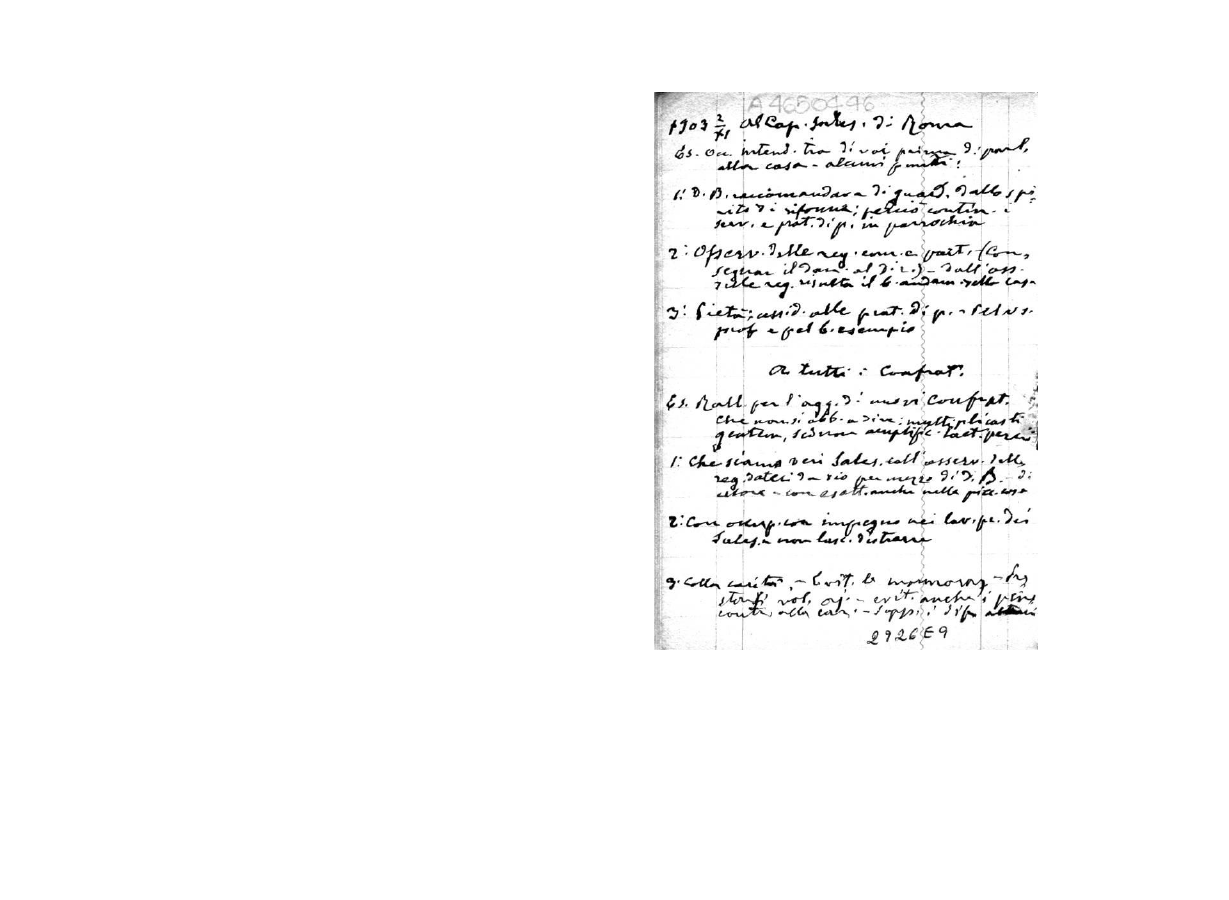 A4650446
1903 2/XI Al Cap. Sales. di Roma
Es. intend. tra di voi prima di part.
alla casa - alcuni
1: D. B. raccomandava di guard. dallo spi
rito di riforma; perciò contin. i
serv. e prat. di p. in parrochia
2: Osserv. delle reg. com. e part. (Con
segnar il dan. al dir.) - dall'oss.
delle reg. risulta il b. andam. della casa
3: Pietà; assid. alle prat. di p. -
prof e pel b. esempio
A tutti i Confrat.
Es. Rall. per l'agg. di nuovi Confrat.
Che non si abb. a dire: multiplicasti
gentem, sed non amplific. laet. perciò
1: Che siamo veri Sales. coll'osserv. delle
reg. dateci da Dio per mezzo di D. B. - di
cuore - con esatt. anche nelle picc. cose
2: Con impegno nei lav. pr. dei
Sales. e non lasc. distrarre
3. Colla carità, - Evit. le mormoraz -
vol. - evit. anche i pens
contr. alla car. - Sopp. i dif.
2926E9